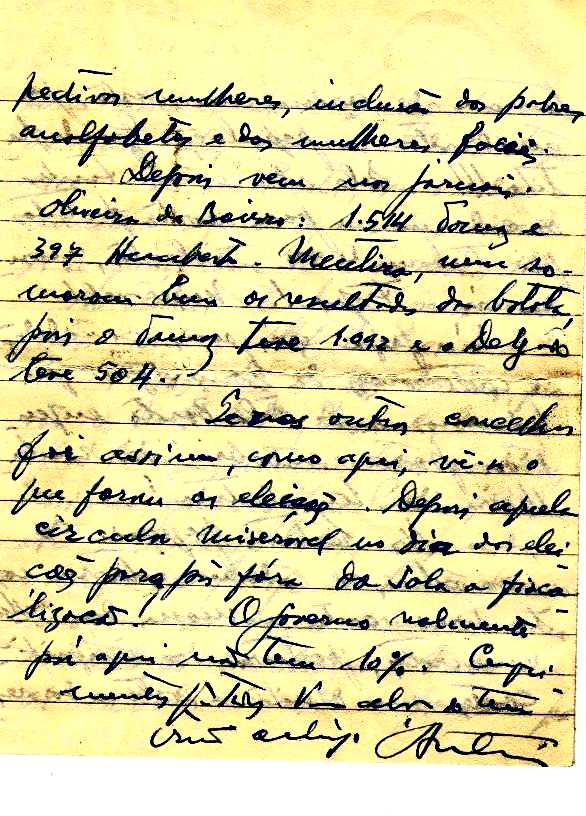 pectivas mulheres, inclusão dos pobres
analfabetos e das mulheres
Depois vem nos jornais.
Oliveira do Bairro: 1.514 Tomaz e
397 Humberto. Mentira, nem so-
maram bem os resultados da batota,
pois o Tomaz teve 1.092 e o Delgado
teve 504.
Se nos outros concelhos
foi assim, como aqui, vê-se o
que foram as eleições. Depois aquela
circular miserável no dia das elei-
ções para pôr fóra da sala a fisca-
lização! O governo realmente
por aqui não tem 10%. Cumpri-
mentos p. Todos. Um abraço do teu
amigo